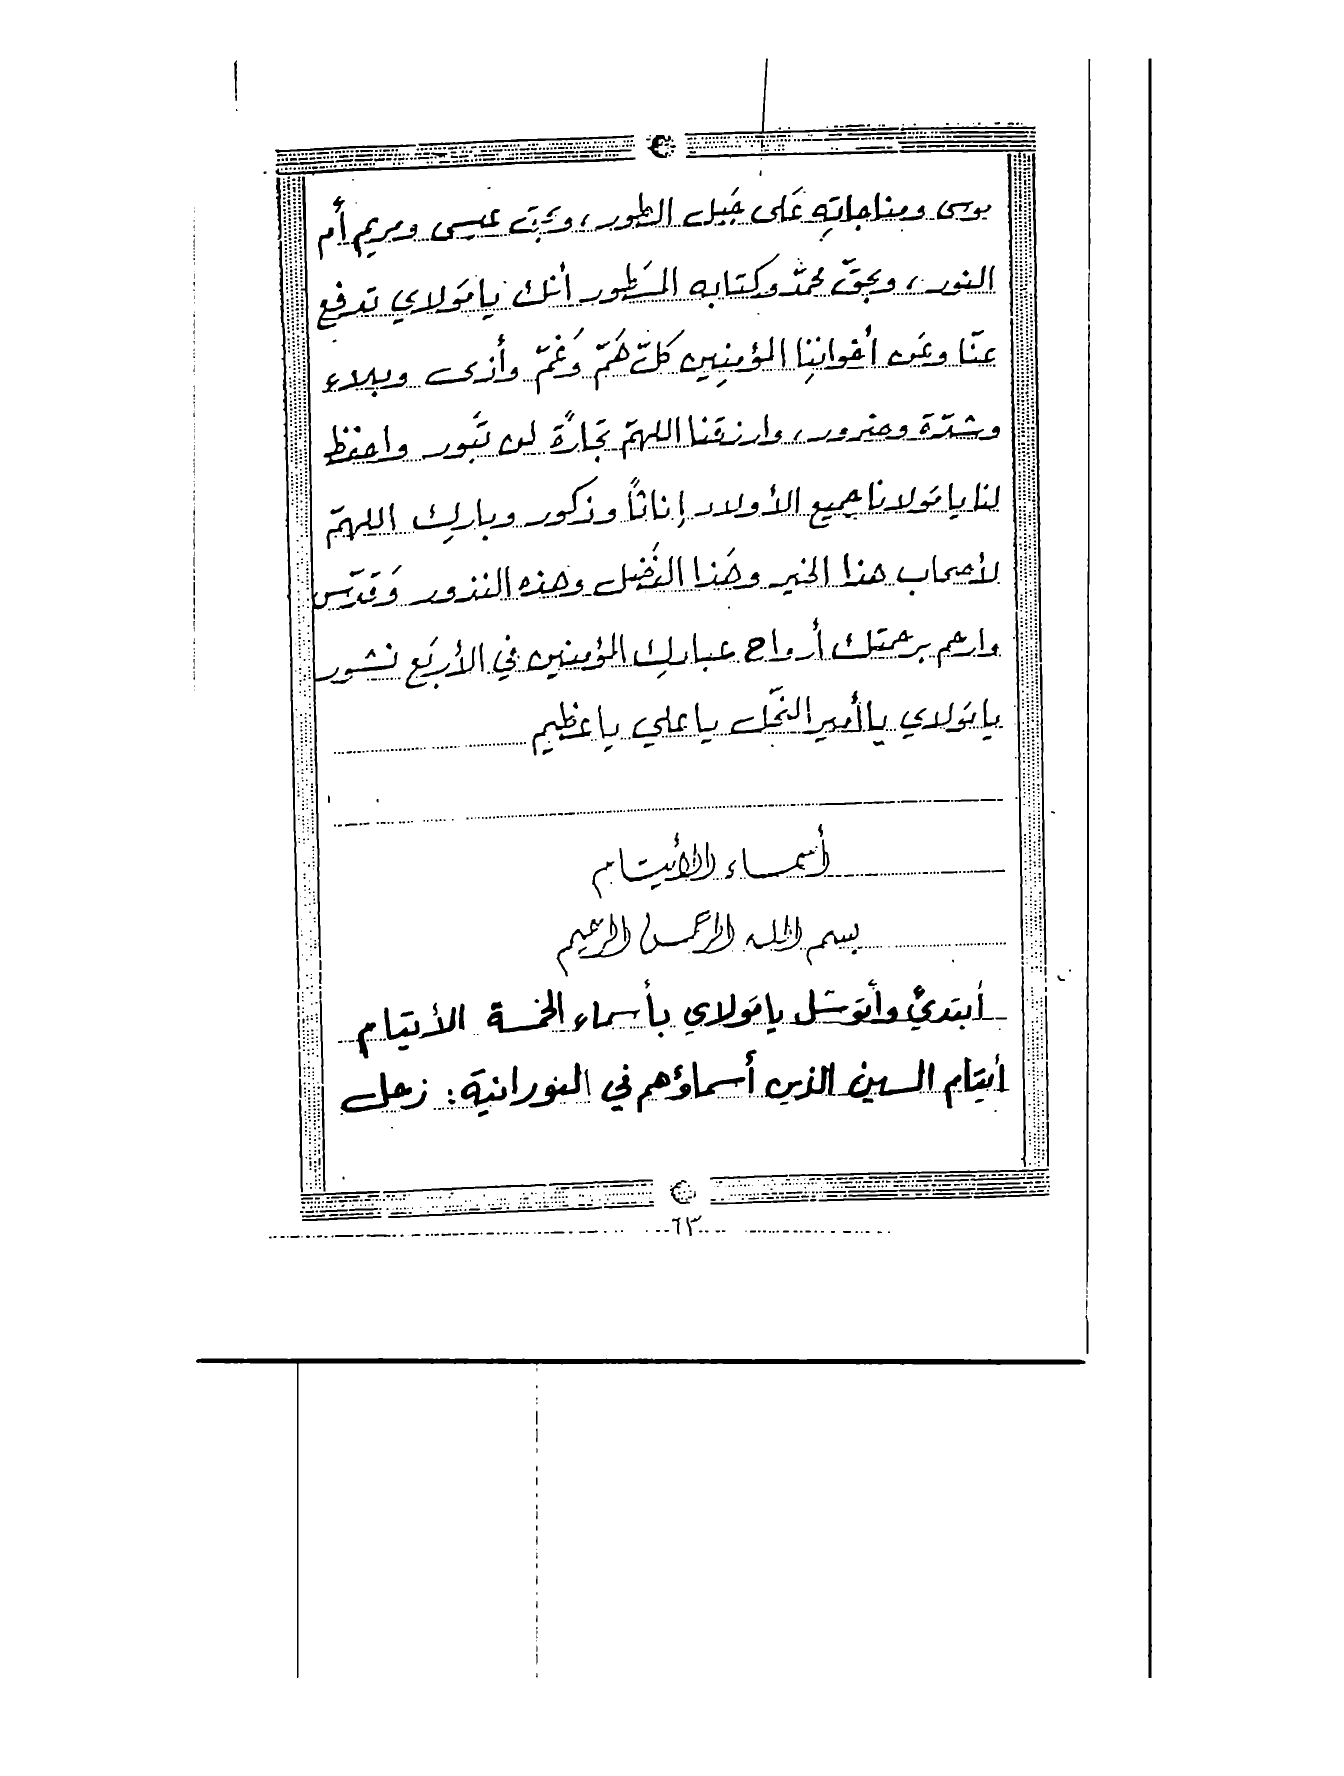 موسى ومناجاتِهِ عَلى جَبل الطور، وبحق عيسى ومريم أُم
النور، وبحقّ محمّد وكتابه المسَطور أنك يا مَولاي تدفع
عنّا وعَن أخواننِا المؤمنِين كلّ هَمّ وَغمّ وأذى وبلاء
وشدّة وضرور، وارزقنا اللهمّ تجارًة لن تَبور واحفظ
لنا يا مَولانا جميع الأولاد إناثاً وذكور وبارك اللهمّ
لأصحاب هذا الخير وهَذا الفَضل وهذه النذور وَقدّس
وارحم برحمتك أرواح عبادك المؤمنين في الأربَع نشور
يا مَولاي يا أمير النَحل يا علي يا عظيم
أسماء الأيتام
بسم الله الرحمن الرحيم
أبتدئُ وأتوسَل يا مَولاي بأسماء الخمسة الأيتام
أيتام السين الذين أسماؤهم في النورانية: زحل
٦٣